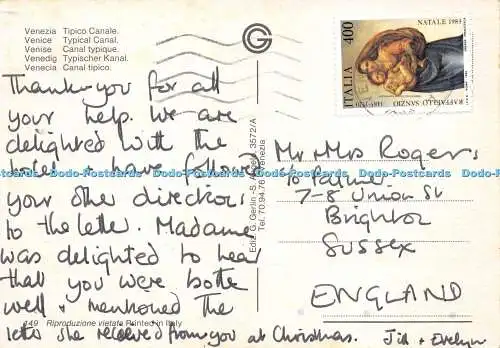 Venezia Tipico Canale.
Venice Typical Canal.
Venise Canal typique.
Venedig Typischer Kanal.
Venecia Canal tipico.
Thank-you for all
your help. We are
delighted with the
hotel + have followed
your directions
to the letter. Madame
was delighted to hear
that you were both
well + mentioned the
letter she received from you at Christmas. Jill + Evelyn
149 Riproduzione vietata Printed in Italy
G
Ediz. G. Gerlin - S. 3572/A
Tel. 70.94.76 Venezia
NATALE 1983
400
ITALIA
RAFFAELLO SANZIO 1483-1520
Mr + Mrs Rogers
7-8 Union St
Brighton
SUSSEX
ENGLAND
Dodo-Postcards Dodo-Postcards Dodo-Postcards Dodo-Postcards Dodo-Postcards Dodo-Postcards